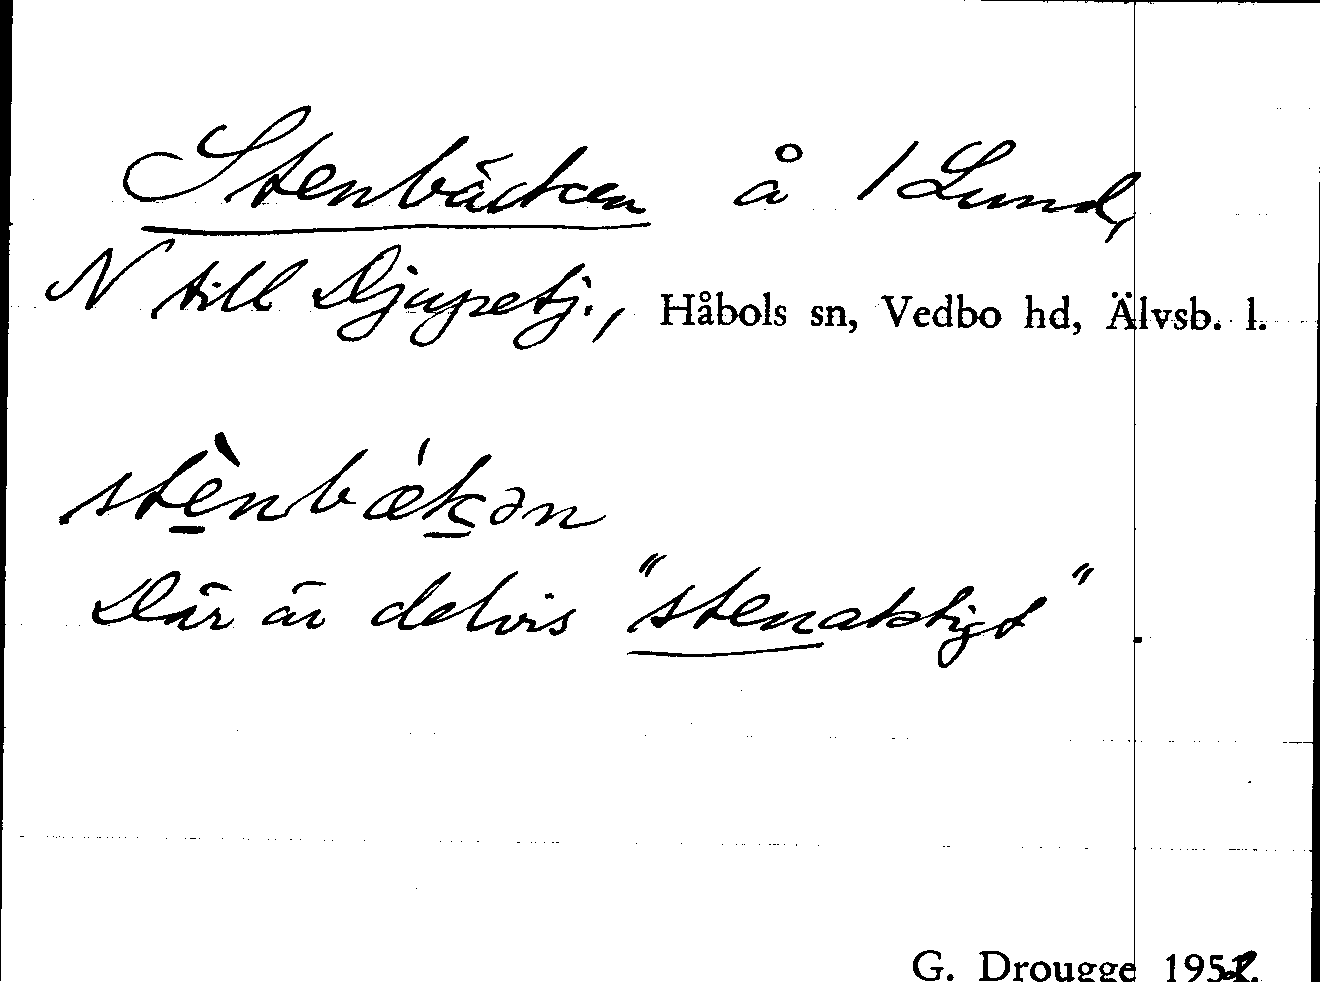 Stenbäcken å 1 Lund,
N till Djupetj., Håbols sn, Vedbo hd, Älvsb. l.
stènbǽkən
Där är delvis "stenaktigt"
G. Drougge 1952.